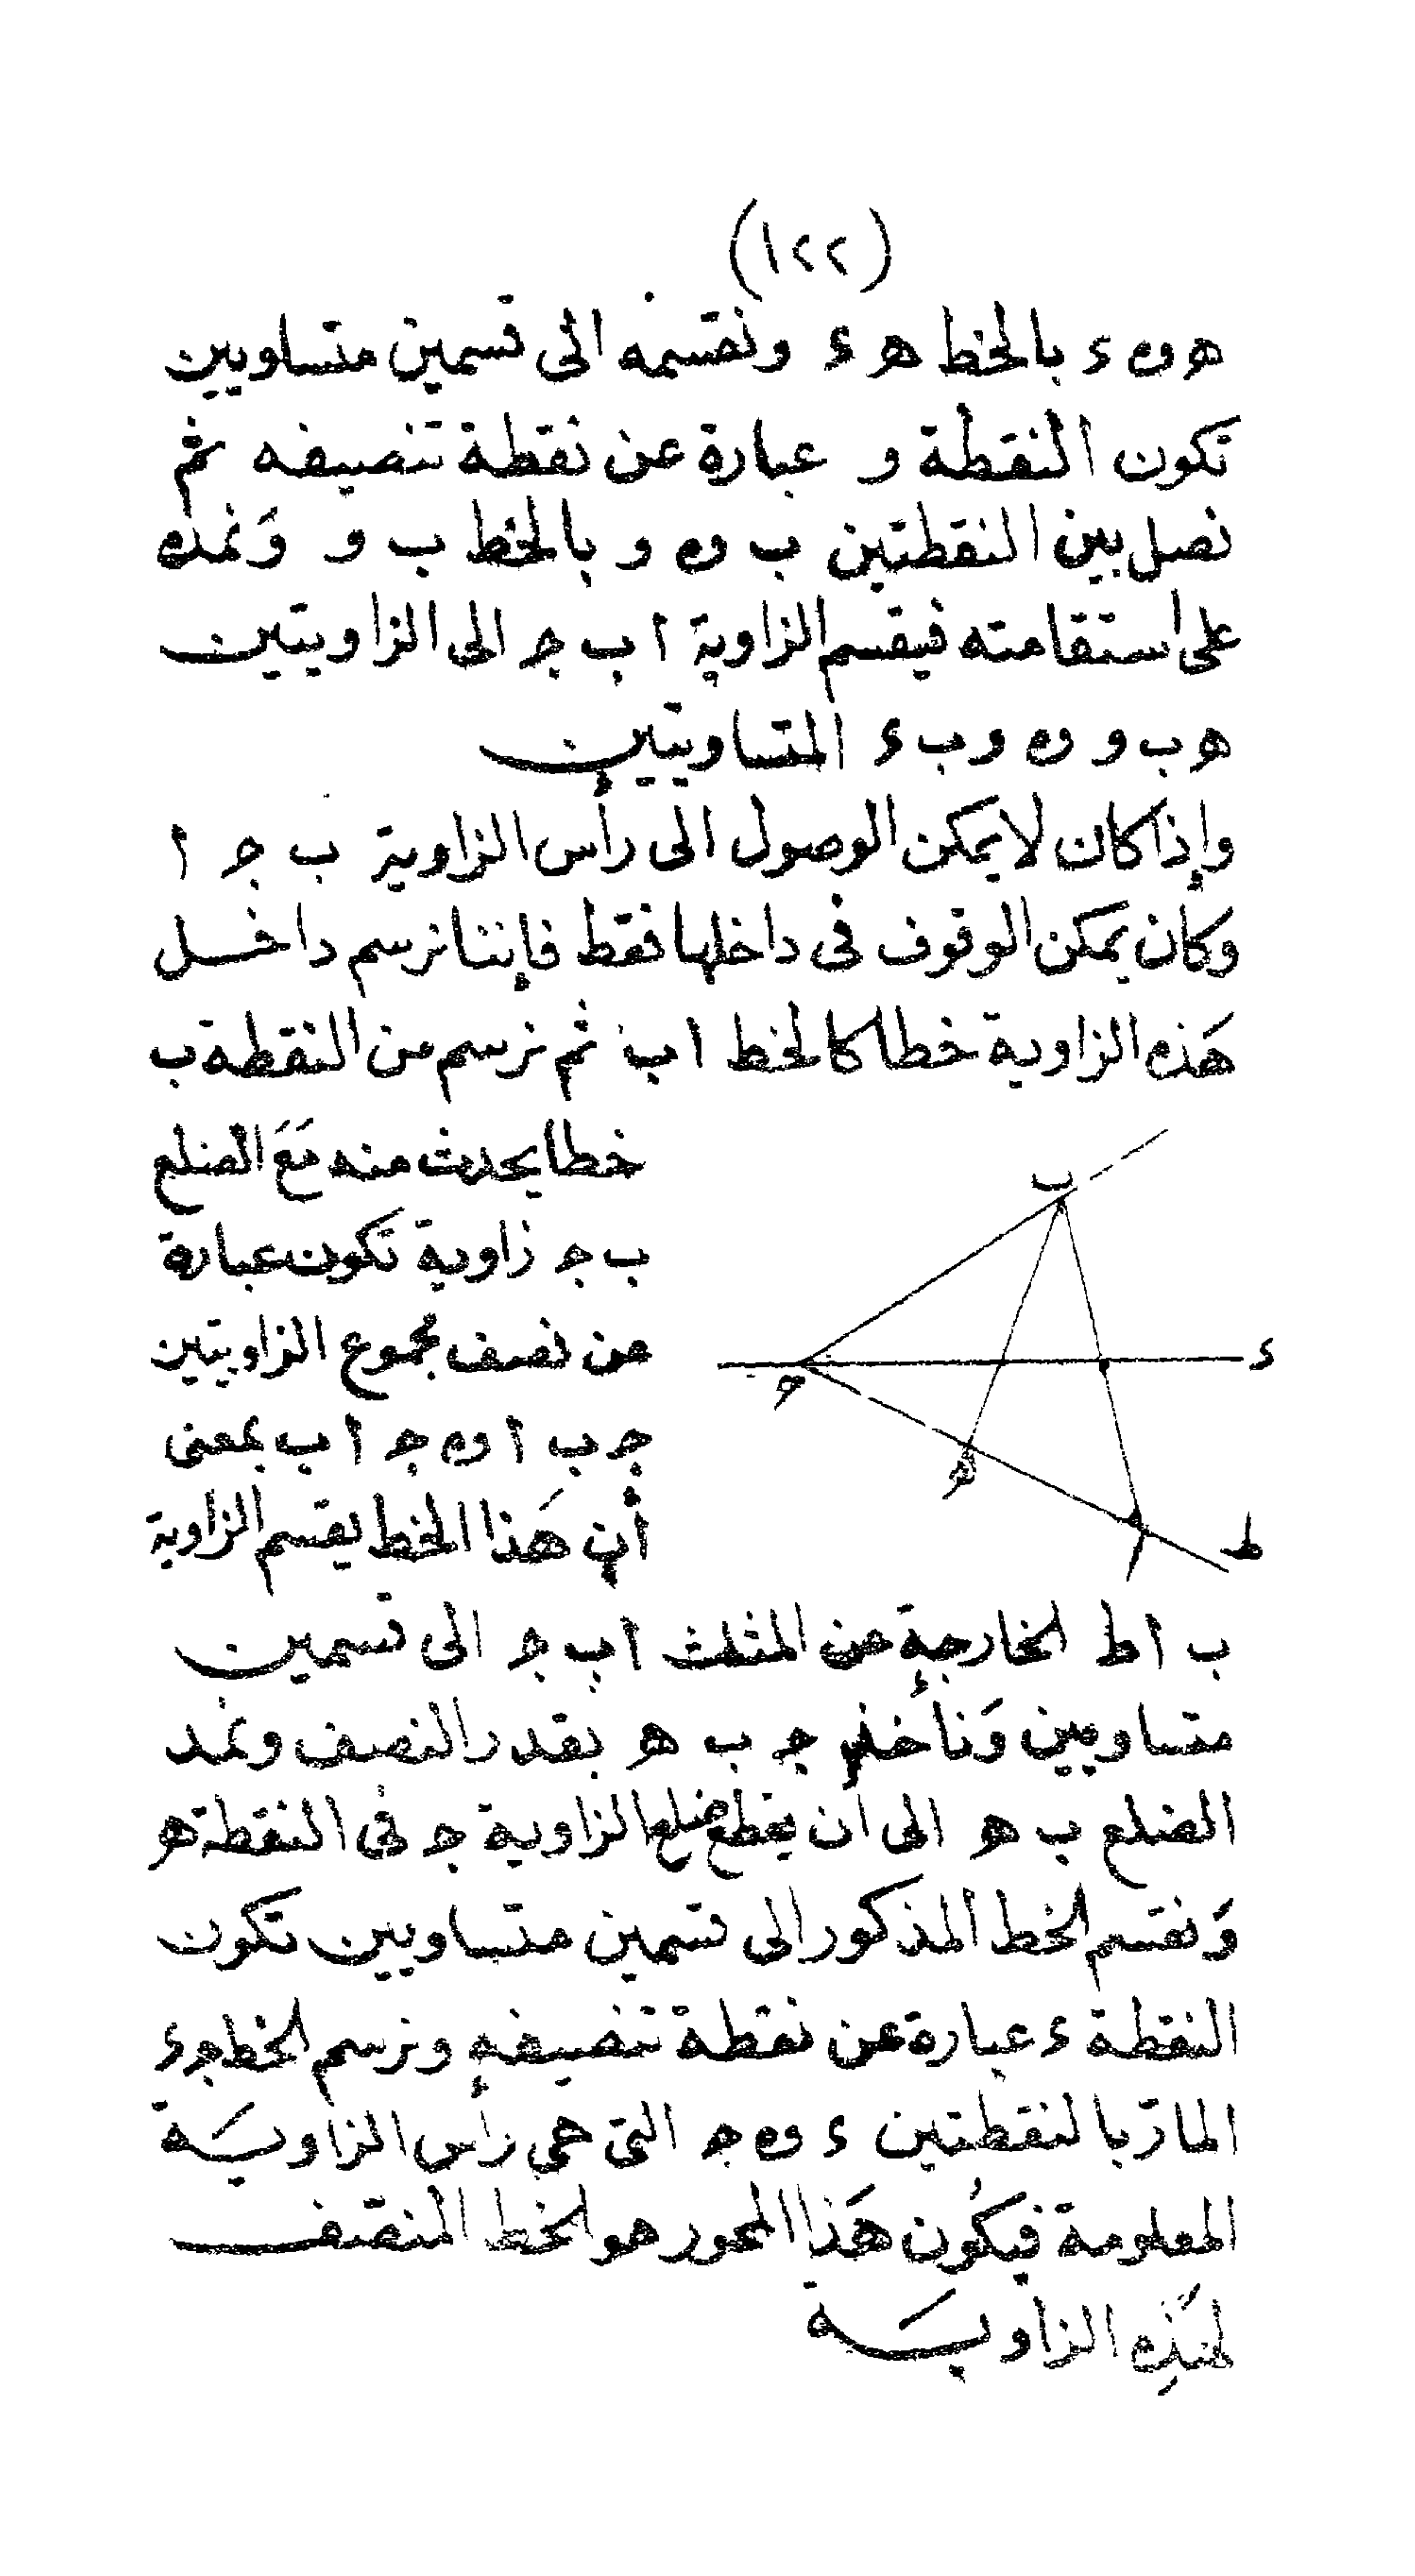 (١٢٢)
ه و ه ء بالخط ه ء ونقسمه الى قسمين متساويين
تكون النقطة و عبارة عن نقطة تنصيفه ثم
نصل بين النقطتين ب و ه و بالخط ب و وَنمده
على استقامته فيقسم الزاوية ا ب ج الى الزاويتين
ه ب و و ه و ب ء المتساويتين
وإذا كان لا يمكن الوصول الى رأس الزاوية ب ج ا
وكان يمكن الوقوف فى داخلها فقط فإننا نرسم داخل
هَذه الزاوية خطا كالخط ا ب ثم نرسم من النقطة ب
خطا يحدث منه مَعَ الضلع
ب ج زاوية تكون عبارة
عن نصف مجموع الزاويتين
ج ب ا و ه ج ا ب بمعنى
أن هَذا الخط يقسم الزاوية
ب
ج
ء
ه
ا
ط
ب ا ط الخارجة عن المثلث ا ب ج الى قسمين
متساويين وَنأخذ ج ب ه بقدر النصف ونمد
الضلع ب ه الى أن يقطع ضلع الزاوية ج فى النقطة ه
وَنقسم الخط المذكور الى قسمين متساويين تكون
النقطة ء عبارة عن نقطة تنصيفه ونرسم الخط ج ء
المارّ بالنقطتين ء و ه ج التى هى رأس الزاويَـة
المعلومة فيكُون هَذا المحور هو الخط المنصف
لهَذِه الزاويَـة